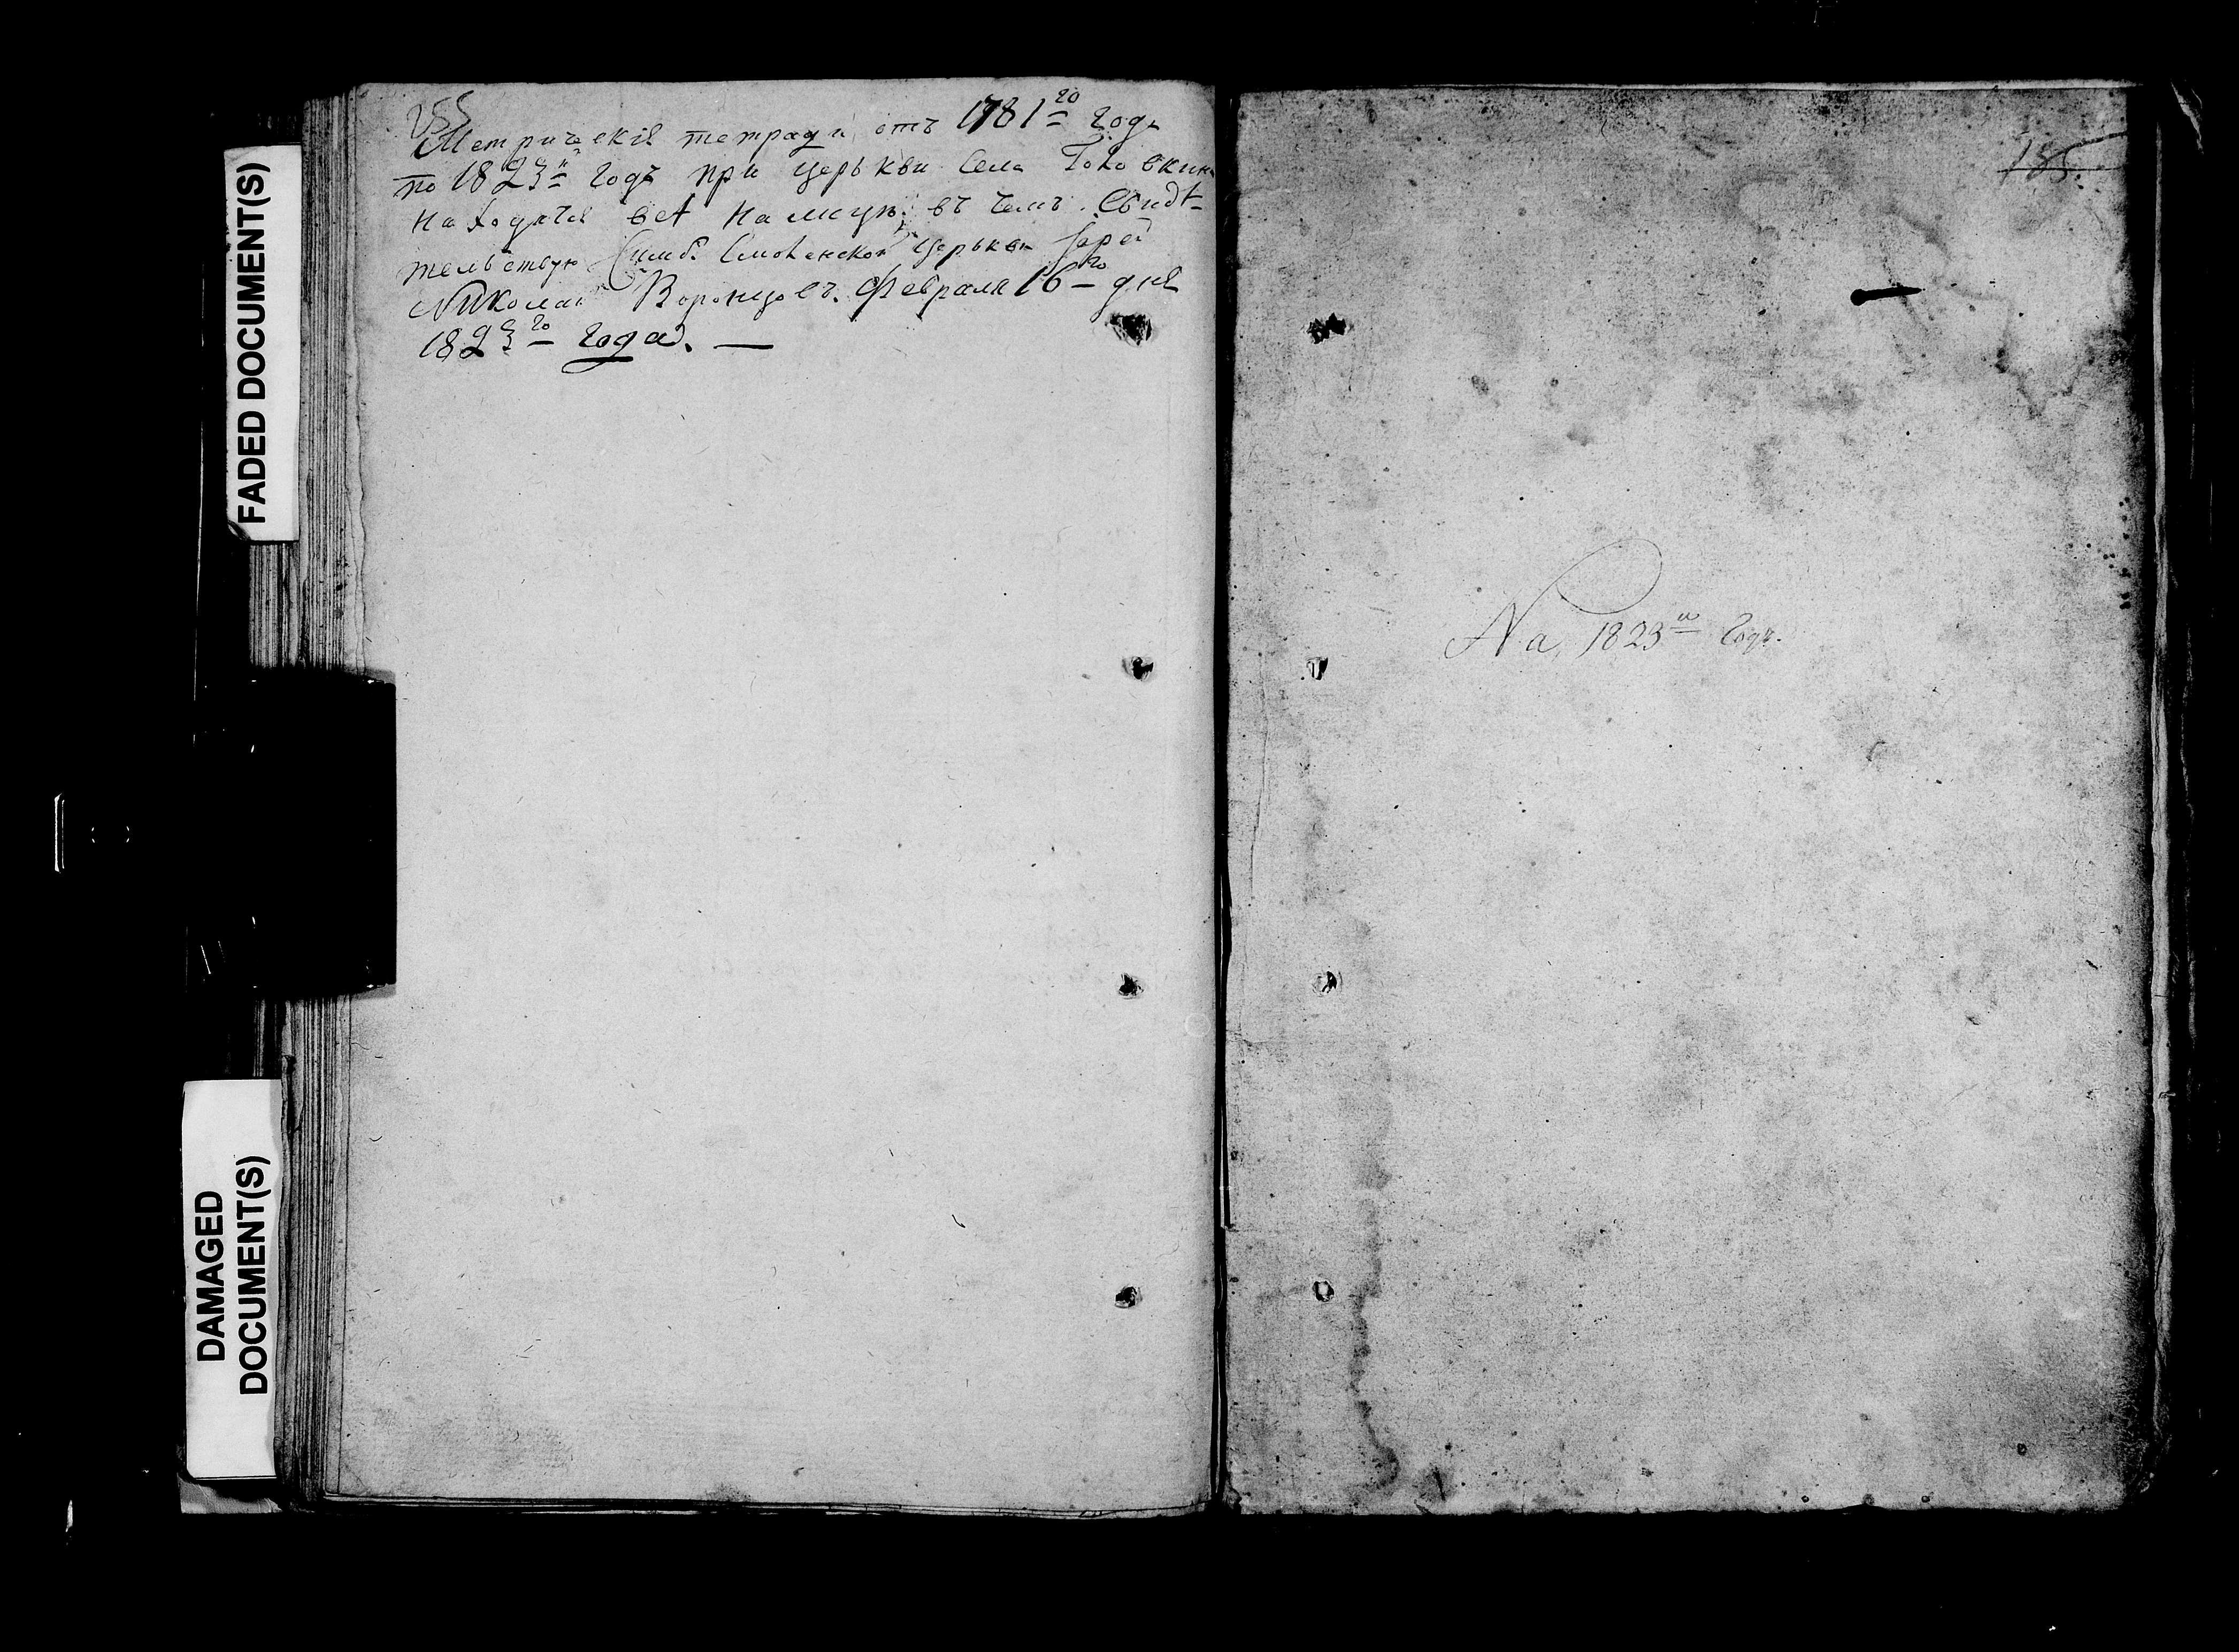 FADED DOCUMENT(S)
DAMAGED
DOCUMENT(S)
255
Метрическія тетради отъ 1781го года
по 1823й годъ при церькви села Головкина
находятся всѣ на лицѣ; въ чемъ свидѣ-
тельствую Симб: Смоленской церькви Іерей
Николай Воронцовъ. Февраля 16го дня
1823го года. —
185
На 1823й годъ.